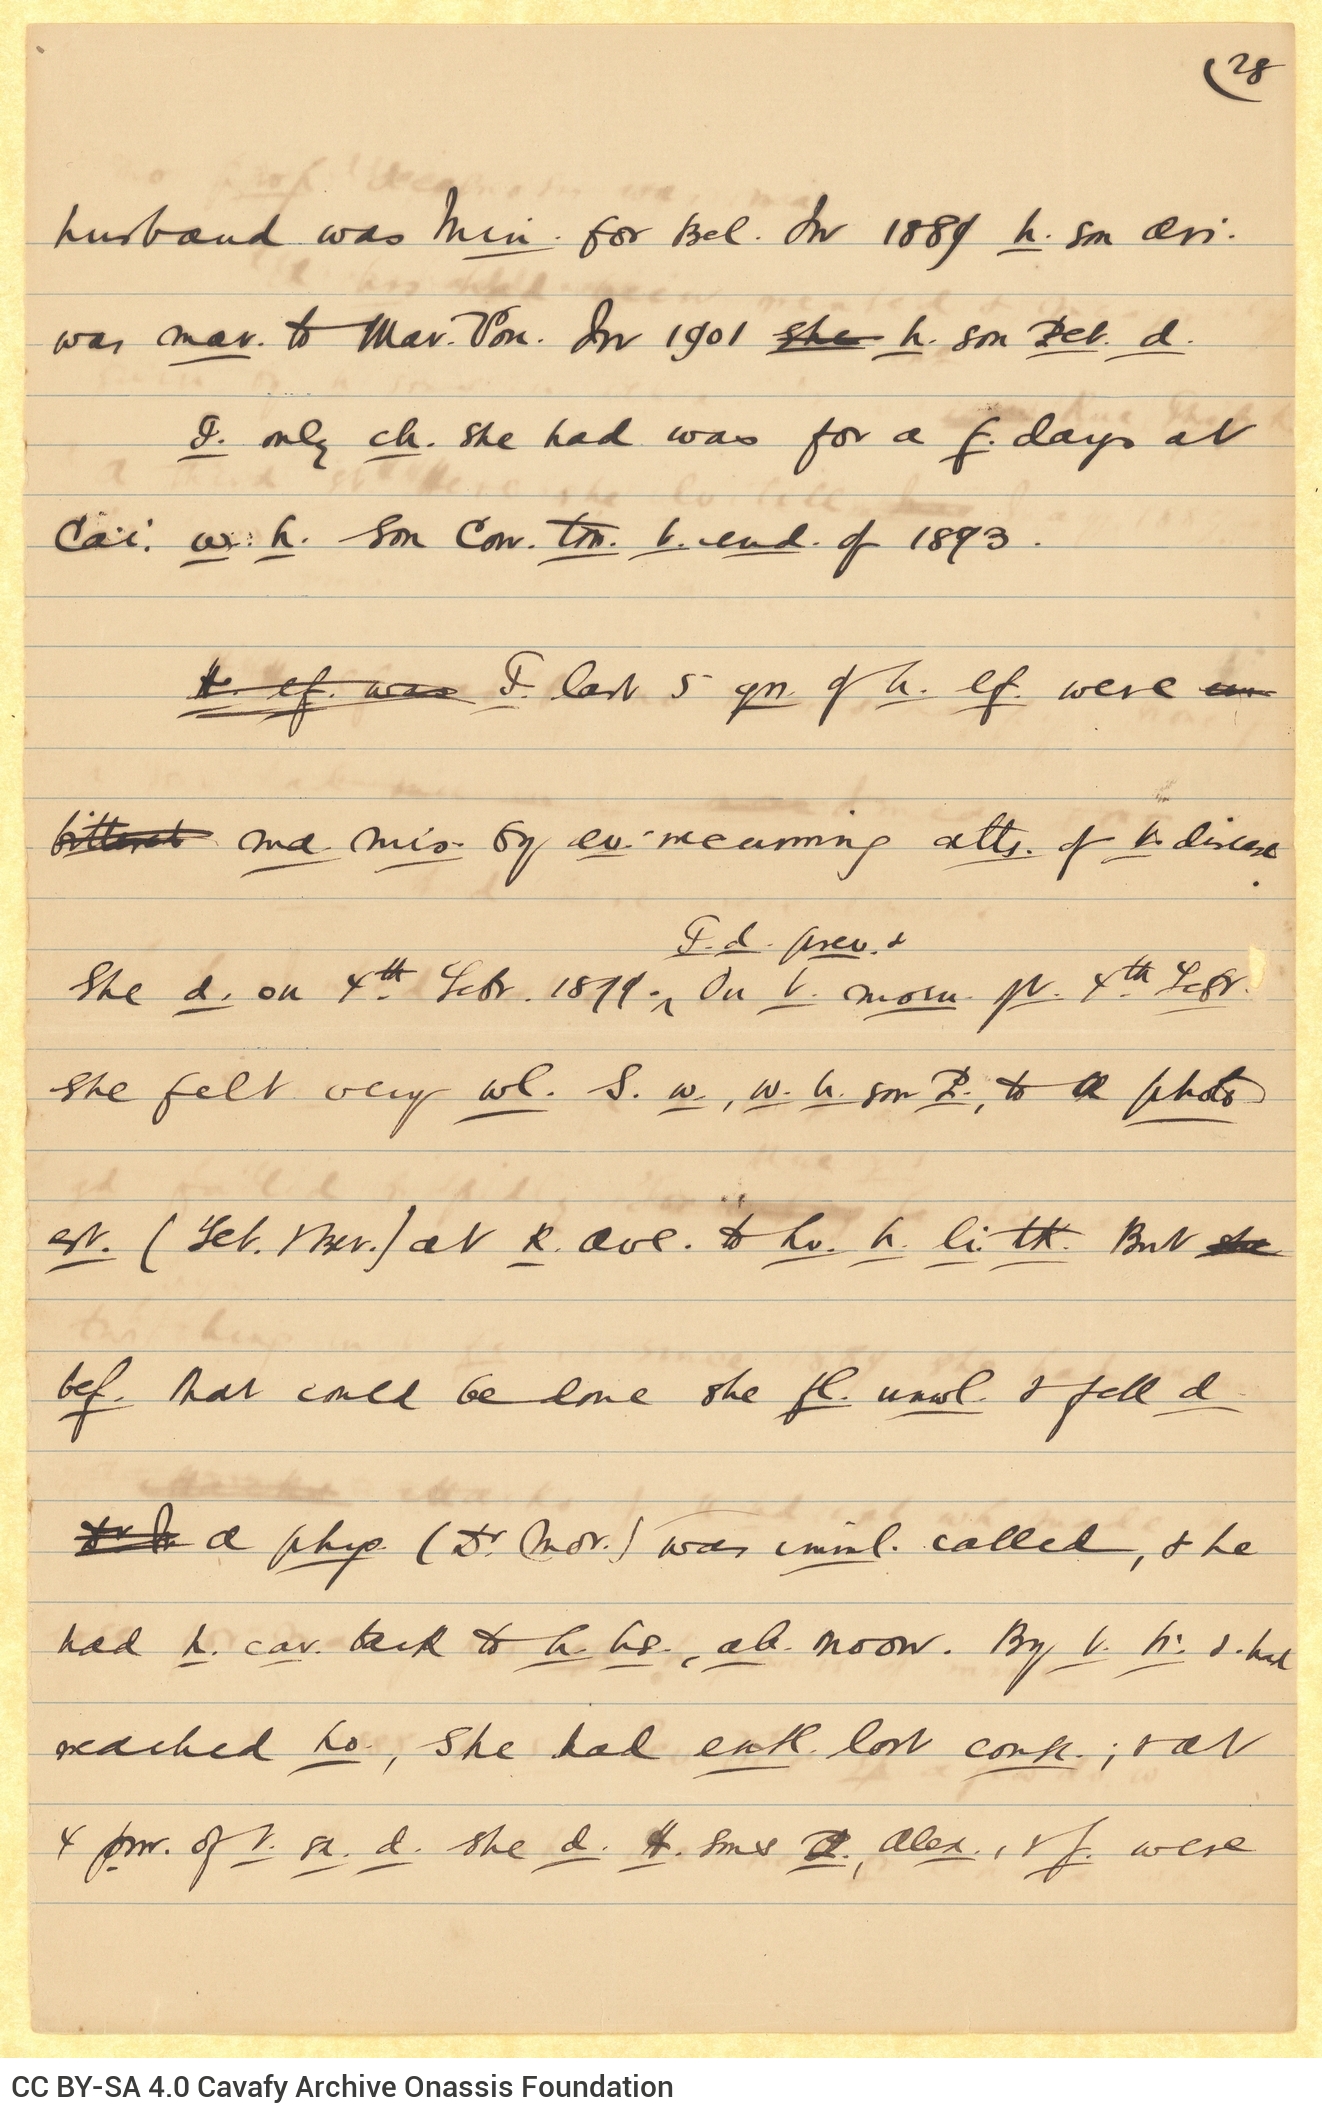 (28
husband was Min. for Bel. In 1889 h. son Ari.
was mar. to Mar. Von. In 1901 she h. son Pet. d.
T. only ch. she had was for a f. days at
Cai. w. h. son Con. tow. t. end. of 1893.
H. lf. was T. last 5 yrs. of h. lf. were
bitterest md. mis. by ev.-recurring atts. of t. disease.
T. d. prev. &
She d. on 4th Febr. 1899. On t. morn. pt. 4th Febr.
she felt very wl. S. w., w. h. son P., to a photo
est. ( ) at R. Ave. to hv. h. li. tk. But she
bef. that could be done she fl. unwl. & fell d.
a phys. (Dr. Mor.) was imml. called, & he
had h. car. back to h. hs., ab. noon. By t. ti. s. had
reached ho., she had entl. lost consc.; & at
4 pm. of t. sa. d. she d. H. sons A., Alex., & J. were
CC BY-SA 4.0 Cavafy Archive Onassis Foundation